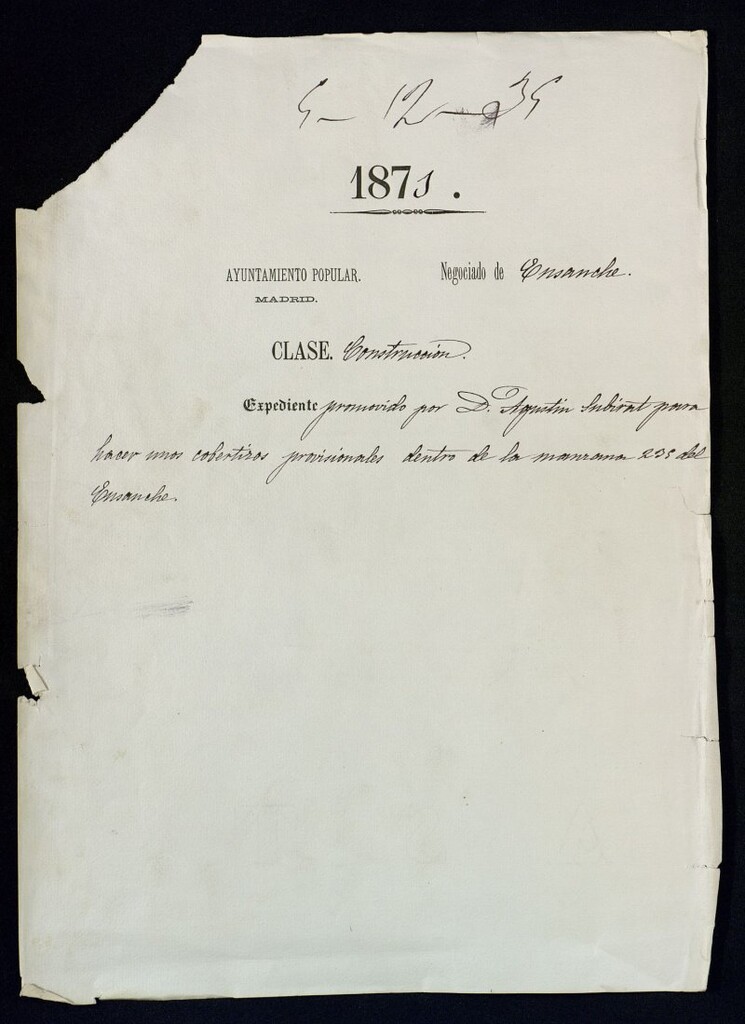 5-12-35
1871.
AYUNTAMIENTO POPULAR. Negociado de Ensanche.
MADRID.
CLASE. Construccion.
Expediente promovido por D. Agustin Subirat para
hacer unos cobertizos provisionales dentro de la manzana 235 del
Ensanche.